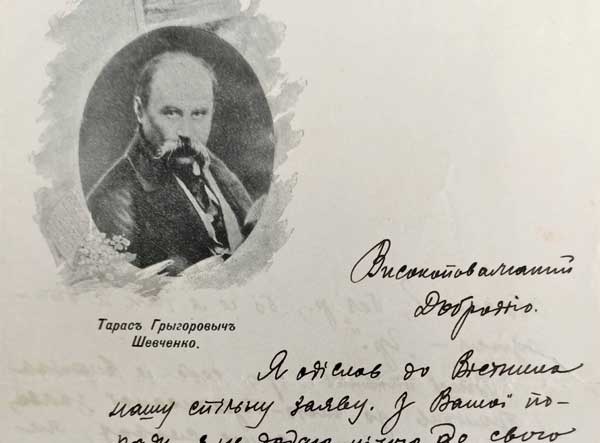 Тарасъ Грыгоровычъ
Шевченко.
Високоповажаний
Добродію.
Я одіслав до Вістника
нашу спільну заяву. З Вашої по-
ради я не додаю нічого до свого